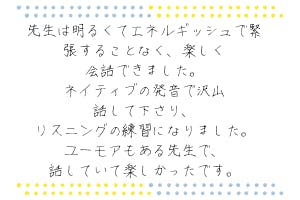 先生は明るくてエネルギッシュで緊
張することなく、楽しく
会話できました。
ネイティブの発音で沢山
話して下さり、
リスニングの練習になりました。
ユーモアもある先生で、
話していて楽しかったです。